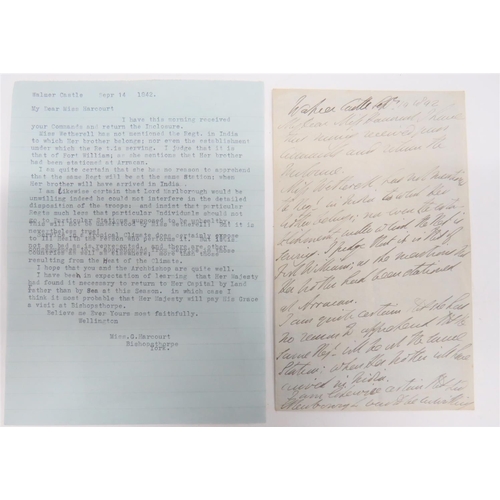 Walmer Castle Sept 14 1842.
My Dear Miss Harcourt
I have this morning received
your Commands and return the Inclosure.
Miss Wetherall has not mentioned the Regt. in India
to which Her brother belongs; nor even the establishment
under which the Rt.is serving. I judge that it is
that of Fort William; as she mentions that Her brother
had been stationed at Arracan.
I am quite certain that she has no reason to apprehend
that the same Regt will be at the same Station; when
Her brother will have arrived in India.
I am likewise certain that Lord Harlborough would be
unwilling indeed he could not interfere in the detailed
disposition of the troops; and insist that particular
Regts much less that particular Individuals should not
go to
This will not be understood by Miss Wetherall. But it is
nevertheless true.
countries as well as elsewhere, more than those
resulting from the want of the climate.
I hope that you and the Archbishop are quite well.
I have been in expectation of learning that Her Majesty
had found it necessary to return to Her Capital by Land
rather than by Sea at this Season. in which Case I
think it most probable that Her Majesty will pay His Grace
a visit at Bishopsthorpe.
Believe me Ever Yours most faithfully.
Wellington
Miss.G.Harcourt
Bishopsthorpe
York.
Walmer Castle
My Dear Miss Harcourt, I have
this morning received your
Commands and return the
Inclosure.
Miss Wetherall has not mentioned
the Regt in India to which her
brother belongs; nor even the establishment
under which the Regt is
serving. I judge that it is that of
Fort William; as she mentions that
her brother had been stationed
at Arracan.
I am quite certain that she has
no reason to apprehend that the
same Regt will be at the same
Station; when her brother will have
arrived in India.
I am likewise certain that Lord